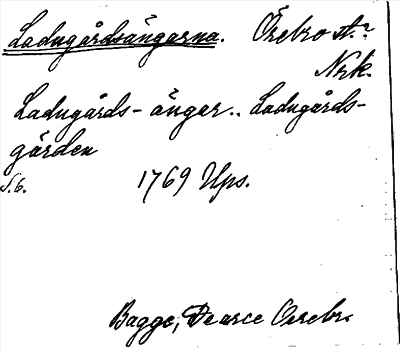 Ladugårdsängarna. Örebro st.?
Nrk.
Ladugårds-ängar.. Ladugårds-
gärden
S.6. 1769 Ups.
Bagge, De urce Oerebr.